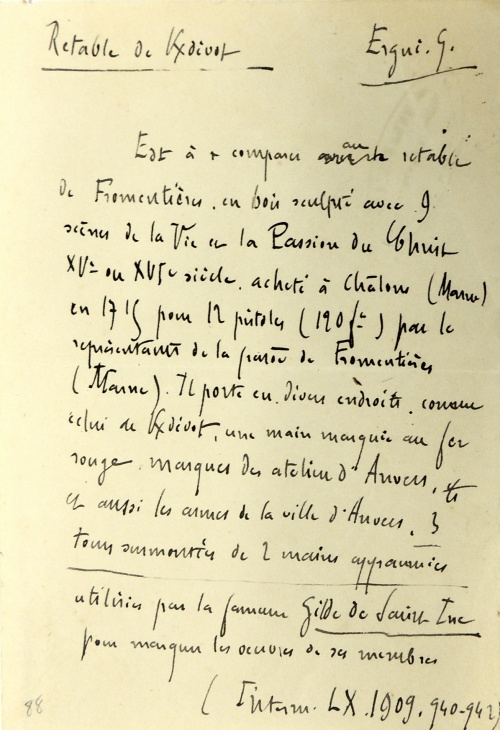 Retable de Kxdivot    Ergui. G.
Est à r comparer au retable
de Fromentières. en bois sculpté avec 9
scènes de la Vie et la Passion du Christ
XVe ou XVIe siècle. acheté à Châlons (Marne)
en 1715 pour 12 pistoles (120 f) par le
représentants de la paroisse de Fromentières
(Marne). Il porte en divers endroits. comme
celui de Kxdivot, une main marquée au fer
rouge. marques des atelier d'Anvers.
et aussi les armes de la ville d'Anvers. 3
tours surmontées de 2 mains appaumées
utilisées par la fameuse Gilde de Saint Luc
pour marquer les oeuvres de ses membres
(Interm. LX. 1909. 940-942)
88